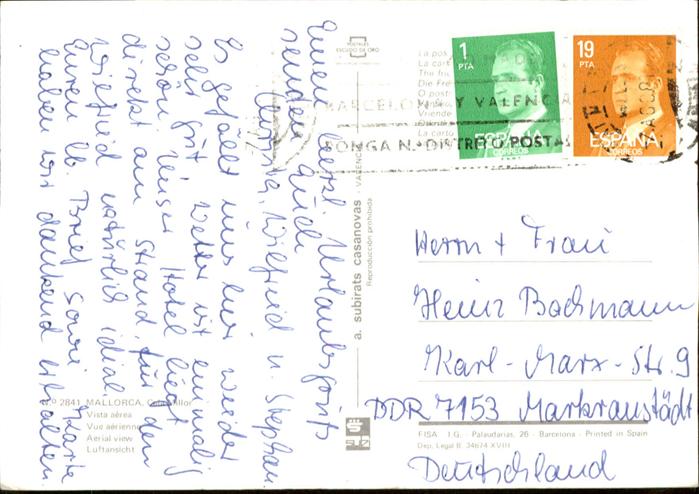 Einen herzl. Urlaubsgruß
senden Euch
Christa, Wilfried u. Stephan.
Es gefällt uns hier wieder
sehr gut. Wetter ist einmalig
schön. Unser Hotel liegt
direkt am Strand, für den
Wilfried natürlich ideal.
Euren lb. Brief sowie Karte
haben wir dankend erhalten.
POSTALES
ESCUDO DE ORO
1
PTA
ESPAÑA
CORREOS
19
PTA
ESPAÑA
CORREOS
BARCELONA Y VALENCIA
PONGA N.º DISTRITO POSTAL
a. subirats casanovas - VALENCIA
Reproducción prohibida
Herrn + Frau
Heinz Bachmann
Karl-Marx-Str. 9
DDR 7153 Markranstädt
Deutschland
N.º 2841 MALLORCA.
Vista aérea
Vue aérienne
Aerial view
Luftansicht
FISA I.G. Palaudarias, 26 - Barcelona - Printed in Spain
Dep. Legal B. 34674 XVIII